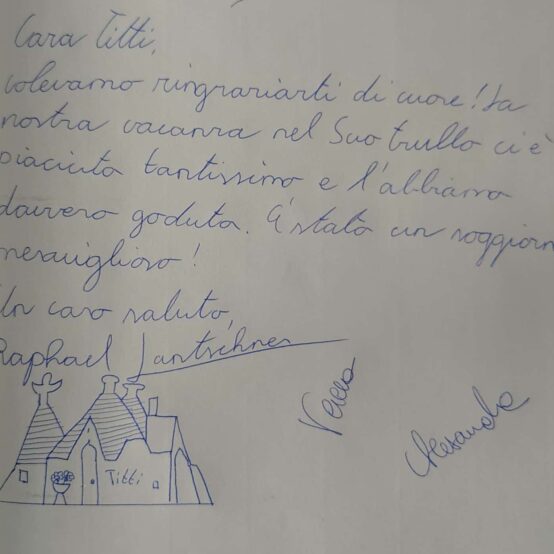 Cara Titti,
volevamo ringraziarti di cuore! La
nostra vacanza nel Suo trullo ci è
piaciuta tantissimo e l'abbiamo
davvero goduta. É stato un soggiorn
meraviglioso!
Un caro saluto,
Raphael Lantschner
Alessandra
Titti